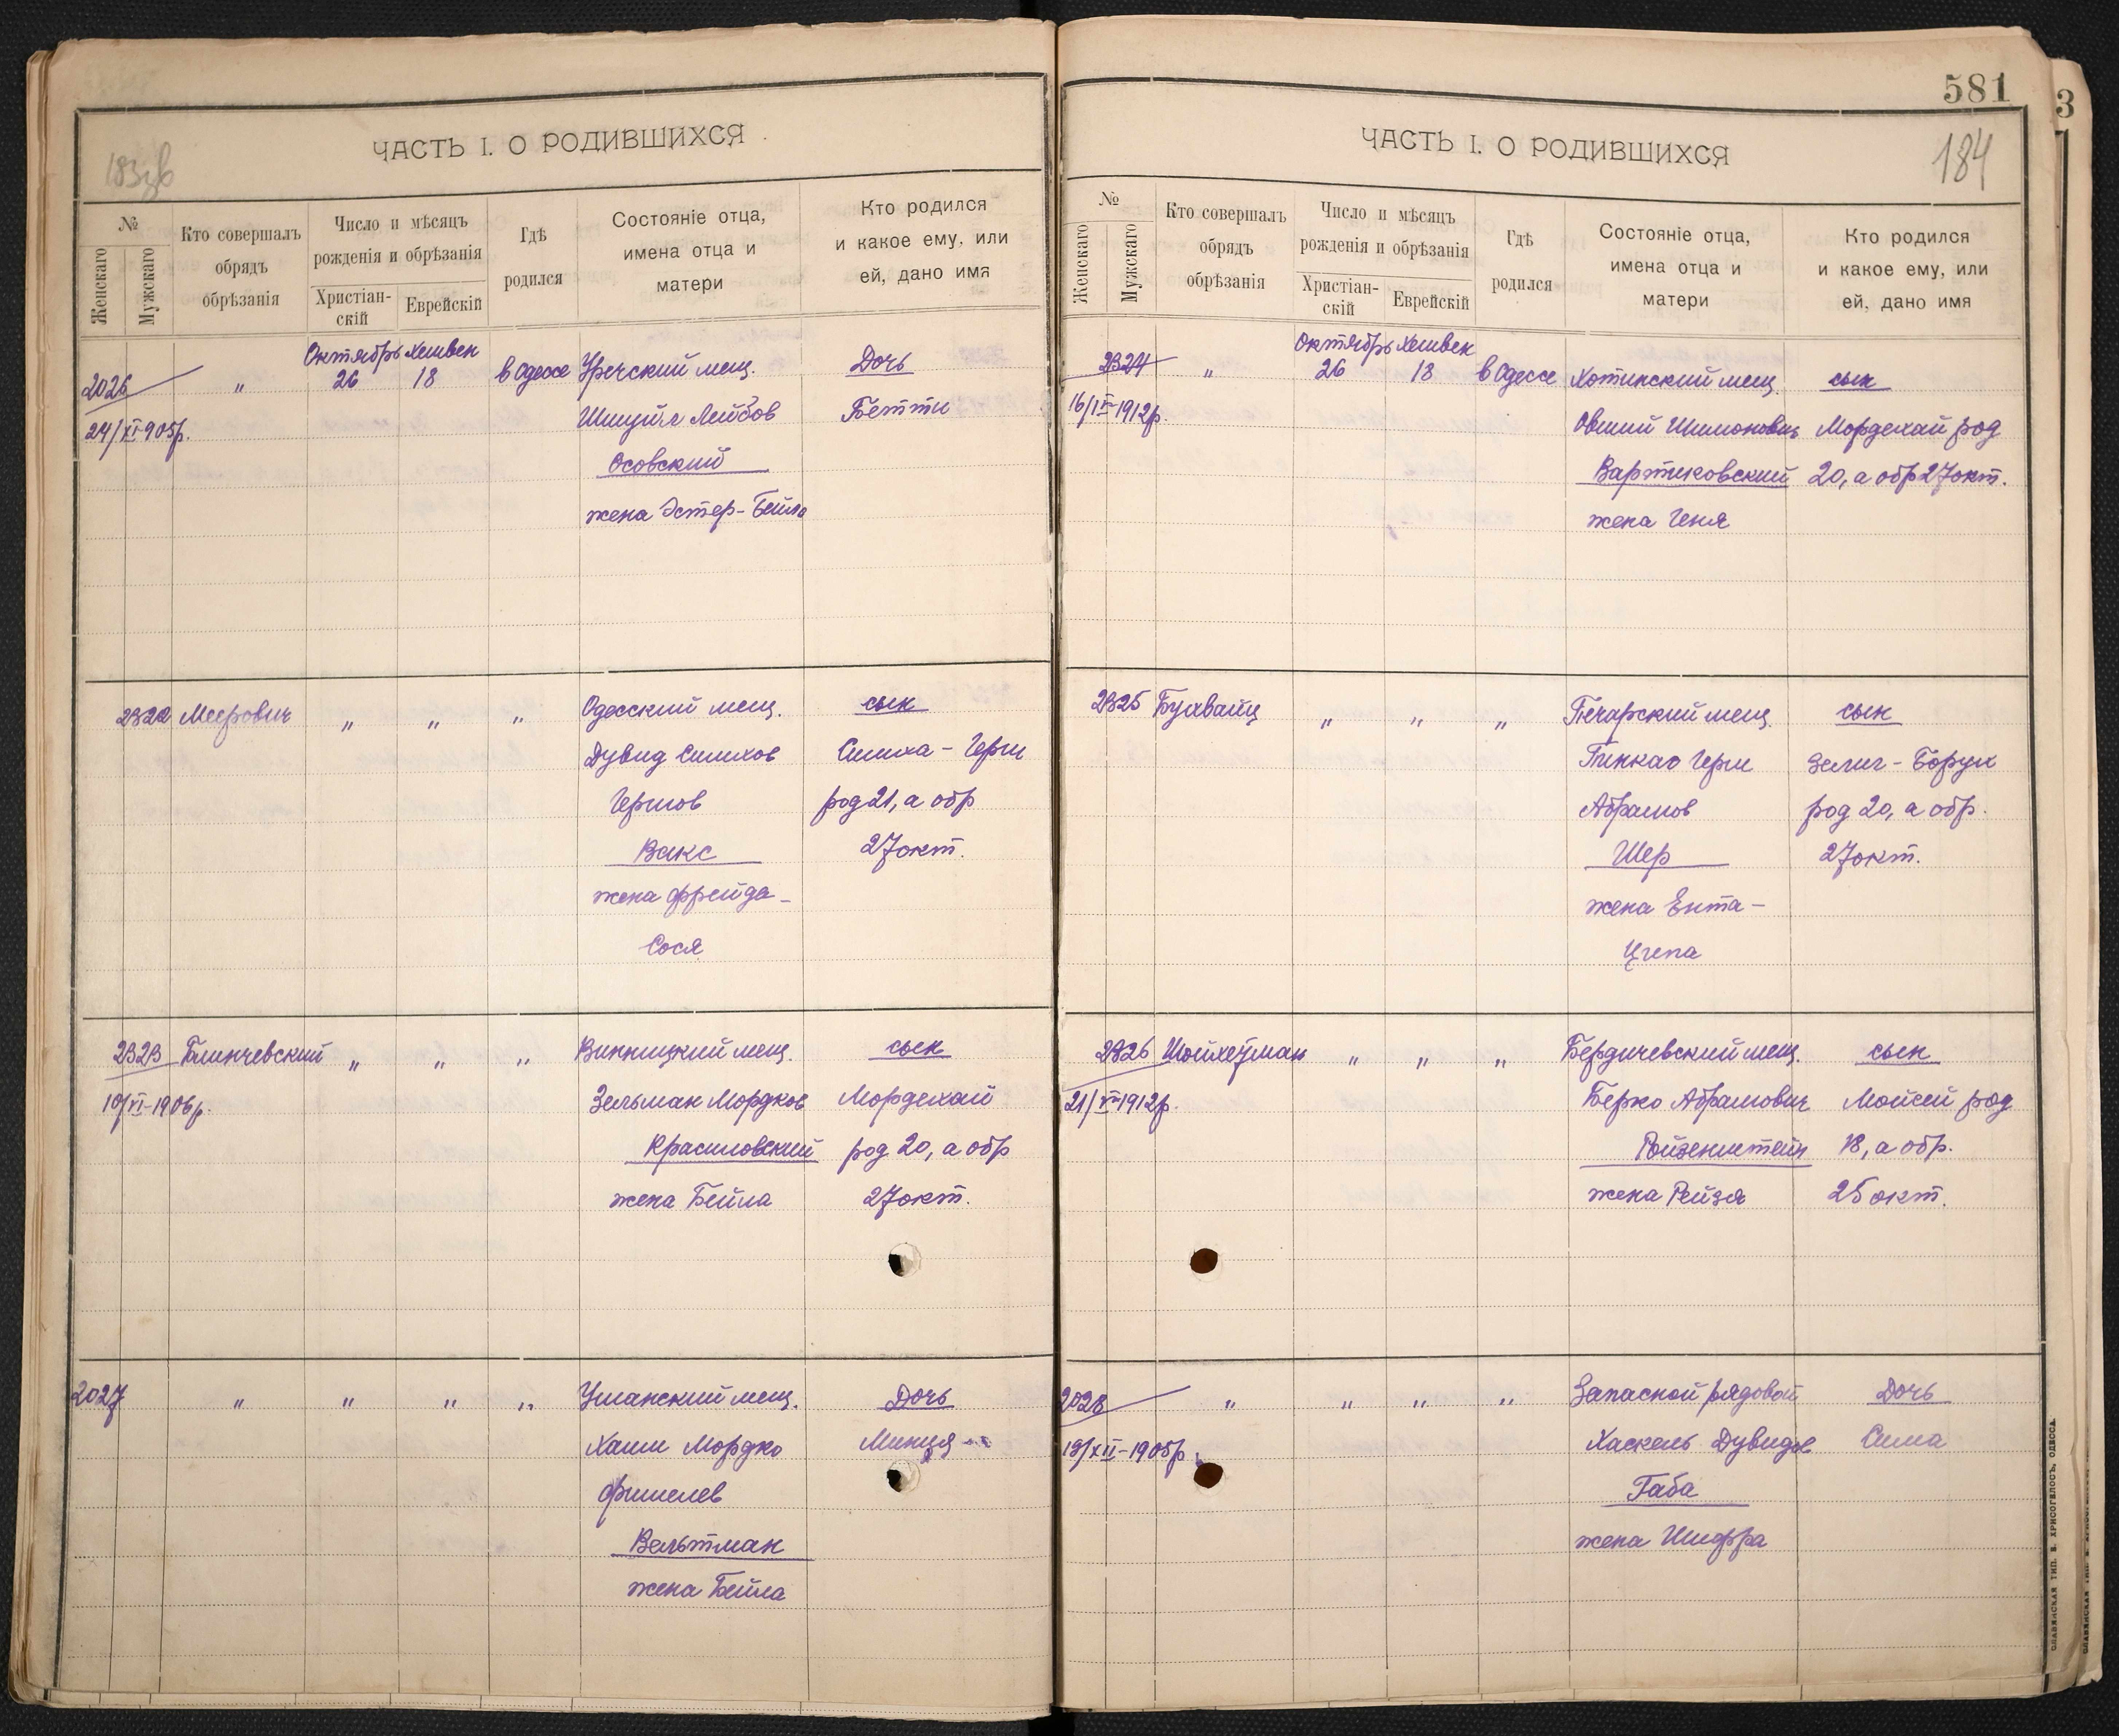 183зв
ЧАСТЬ I. О РОДИВШИХСЯ
№
Женскаго
Мужскаго
Кто совершалъ
обрядъ
обрѣзанія
Число и мѣсяцъ
рожденія и обрѣзанія
Христіан-
скій
Еврейскій
Гдѣ
родился
Состояніе отца,
имена отца и
матери
Кто родился
и какое ему, или
ей, дано имя
Октябрь Хешвен
2026 " 26 18 в Одессе Уречский мещ. Дочь
24/XI-905р. Шмуйл Лейбов Бетти
Осовский
жена Эстер-Бейла
2322 Меерович " " " Одесский мещ. сын
Дувид Симхов Симха-Герш
Гершов род 21, а обр
Вакс 27 окт.
жена Фрейда-
Сося
2323 Блинчевский " " " Винницкий мещ. сын
10/VI-1906р. Зельман Мордков Мордехай
Красиловский род 20, а обр
жена Бейла 27 окт.
2027 " " " " Уманский мещ. Дочь
Хаим Мордко Минця
Фишелев
Вельтман
жена Бейла
581
184
ЧАСТЬ I. О РОДИВШИХСЯ
№
Женскаго
Мужскаго
Кто совершалъ
обрядъ
обрѣзанія
Число и мѣсяцъ
рожденія и обрѣзанія
Христіан-
скій
Еврейскій
Гдѣ
родился
Состояніе отца,
имена отца и
матери
Кто родился
и какое ему, или
ей, дано имя
Октябрь Хешвен
2324 " 26 18 в Одессе Хотинский мещ. сын
1912р. Овший Шимонович Мордехай род
Вартиковский 20, а обр 27 окт.
жена Геня
2325 Бухвайц " " " Печарский мещ. сын
Пинкас Герш Зелиг-Борух
Абрамов род 20, а обр.
Шер 27 окт.
жена Ента-
Ципа
2326 Шойхетман " " " Бердичевский мещ. сын
1912р. Берко Абрамович Мойсей род
Ройзенштейн 18, а обр.
жена Рейзя 25 окт.
2028 " " " " Запасной рядовой Дочь
19/XII-1905р. Хаскель Дувидов Сима
Габа
жена Шифра
СЛАВЯНСКАЯ ТИП. Е. ХРИСОГЕЛОСЪ, ОДЕССА.